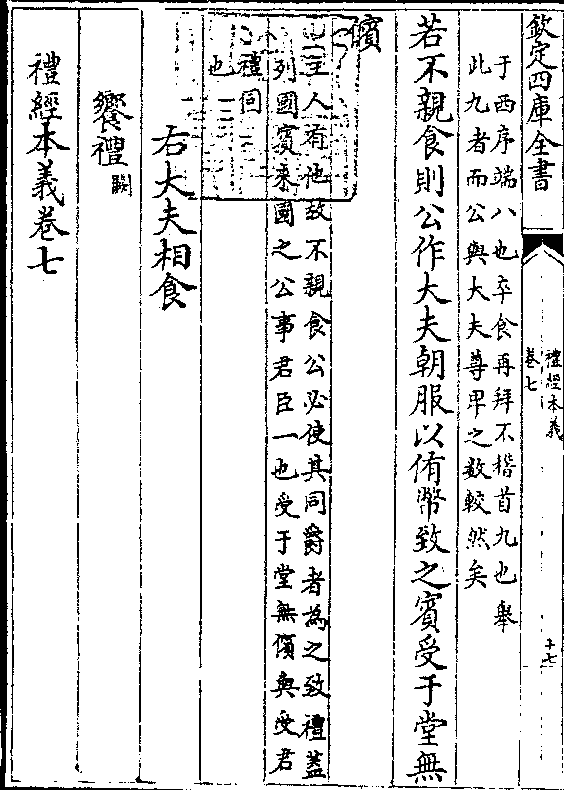 欽定四庫全書
禮經本義
卷七
十七
于西序端八也卒食再拜不稽首九也舉
此九者而公與大夫尊卑之數較然矣
若不親食則公作大夫朝服以侑幣致之賓受于堂無
儐
主人有他故不親食公必使其同爵者為之致禮蓋
列國賓來國之公事君臣一也受于堂無儐與受君
禮同
也
右大夫相食
饗禮闕
禮經本義卷七